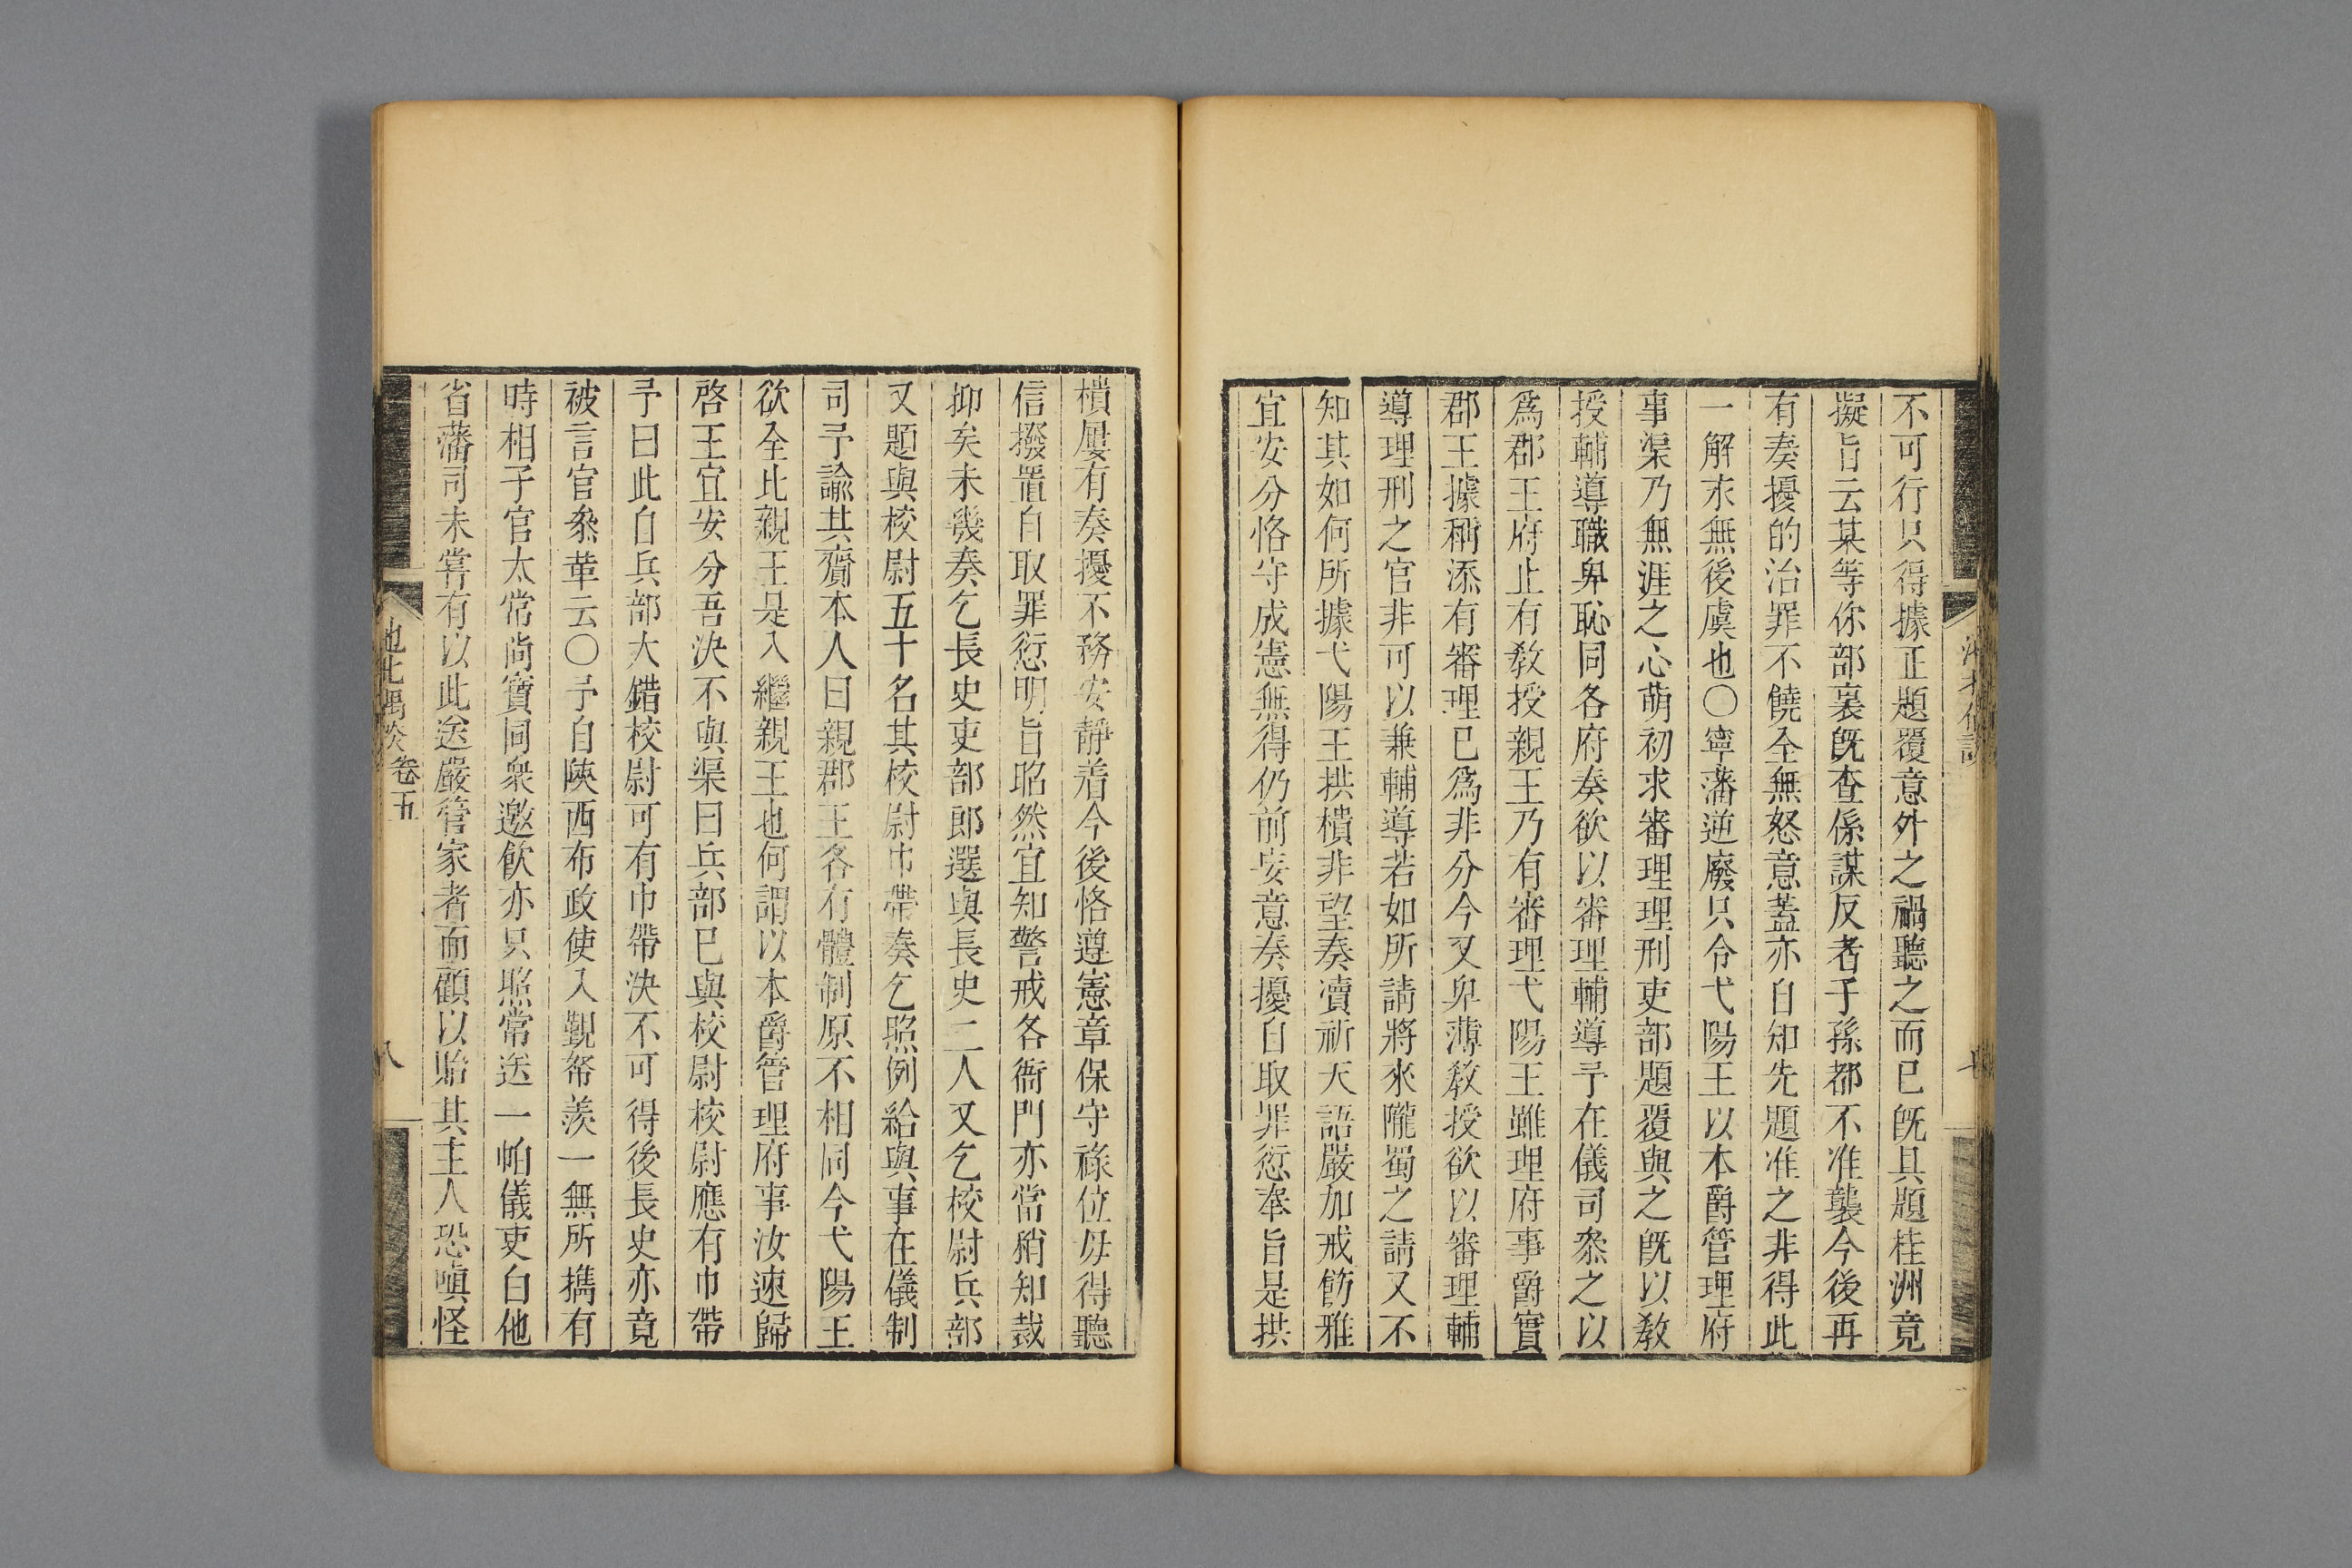 不可行只得據正題覆意外之禍聽之而已既具題桂洲竟
擬旨云某等你部裏既查係謀反者子孫都不准襲今後再
有奏擾的治罪不饒全無怒意蓋亦自知先題准之非得此
一解末無後虞也〇寧藩逆廢只令弋陽王以本爵管理府
事渠乃無涯之心萌初求審理理刑吏部題覆與之既以敎
授輔導職卑恥同各府奏欲以審理輔導予在儀司叅之以
爲郡王府止有敎授親王乃有審理弋陽王雖理府事爵實
郡王據稱添有審理已爲非分今又卑薄敎授欲以審理輔
導理刑之官非可以兼輔導若如所請將來隴蜀之請又不
知其如何所據弋陽王拱樻非望奏瀆祈天語嚴加戒飭雅
宜安分恪守成憲無得仍前妄意奏擾自取罪愆奉旨是拱
樻屢有奏擾不務安靜着今後恪遵憲章保守祿位毋得聽
信撥置自取罪愆明旨昭然宜知警戒各衙門亦當稍知裁
抑矣未幾奏乞長史吏部郎選與長史二人又乞校尉兵部
又題與校尉五十名其校尉巾帶奏乞照例給與事在儀制
司予諭其齎本人曰親郡王各有體制原不相同今弋陽王
欲全比親王是入繼親王也何謂以本爵管理府事汝速歸
啓王宜安分吾決不與渠曰兵部已與校尉校尉應有巾帶
予曰此自兵部大錯校尉可有巾帶決不可得後長史亦竟
被言官叅革云〇予自陝西布政使入覲帑羨一無所攜有
時相子官太常尚寶同衆邀飮亦只照常送一帕儀吏白他
省藩司未甞有以此送嚴管家者而顧以貽其主人恐嗔怪
池北偶談 卷五 八